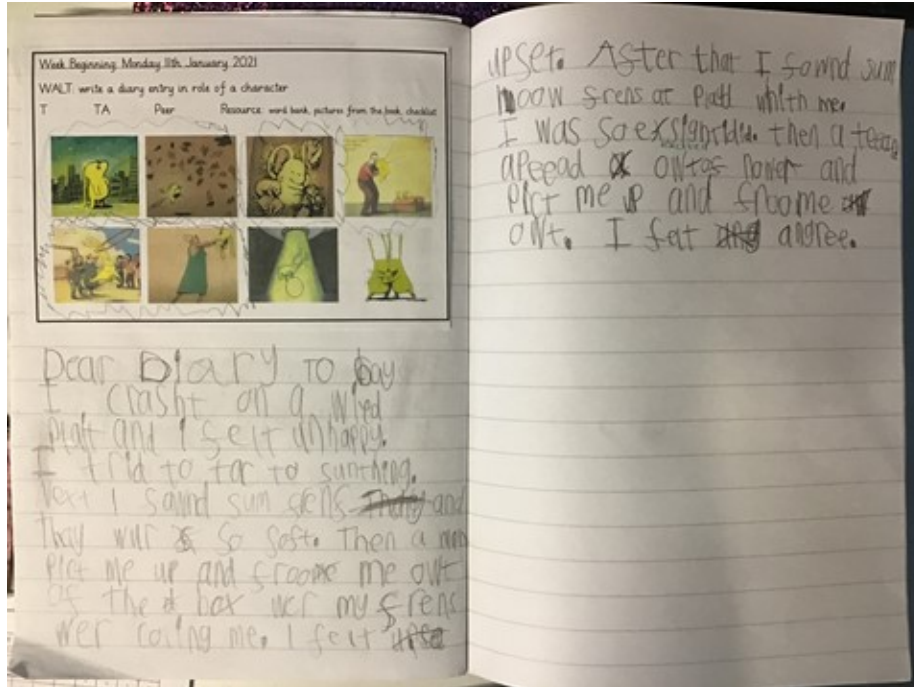 Week Beginning: Monday 11th January 2021
WALT: write a diary entry in role of a character
T TA Peer Resource: word bank, pictures from the book, checklist
Dear Diary TO Day
I crasht on a wied
platt and I felt unhappy.
I trid to tor to sunthing.
Next I sound sum frens and
thay wur so soft. Then a man
Pict me up and froome me owt
of the box wer my frens
wer casing me. I felt
upset. After that I fownd sum
noow frens at Platl whith me.
I was so exsigntdid. then a
apeead owtof nower and
Pict me up and froome
owt. I felt angree.